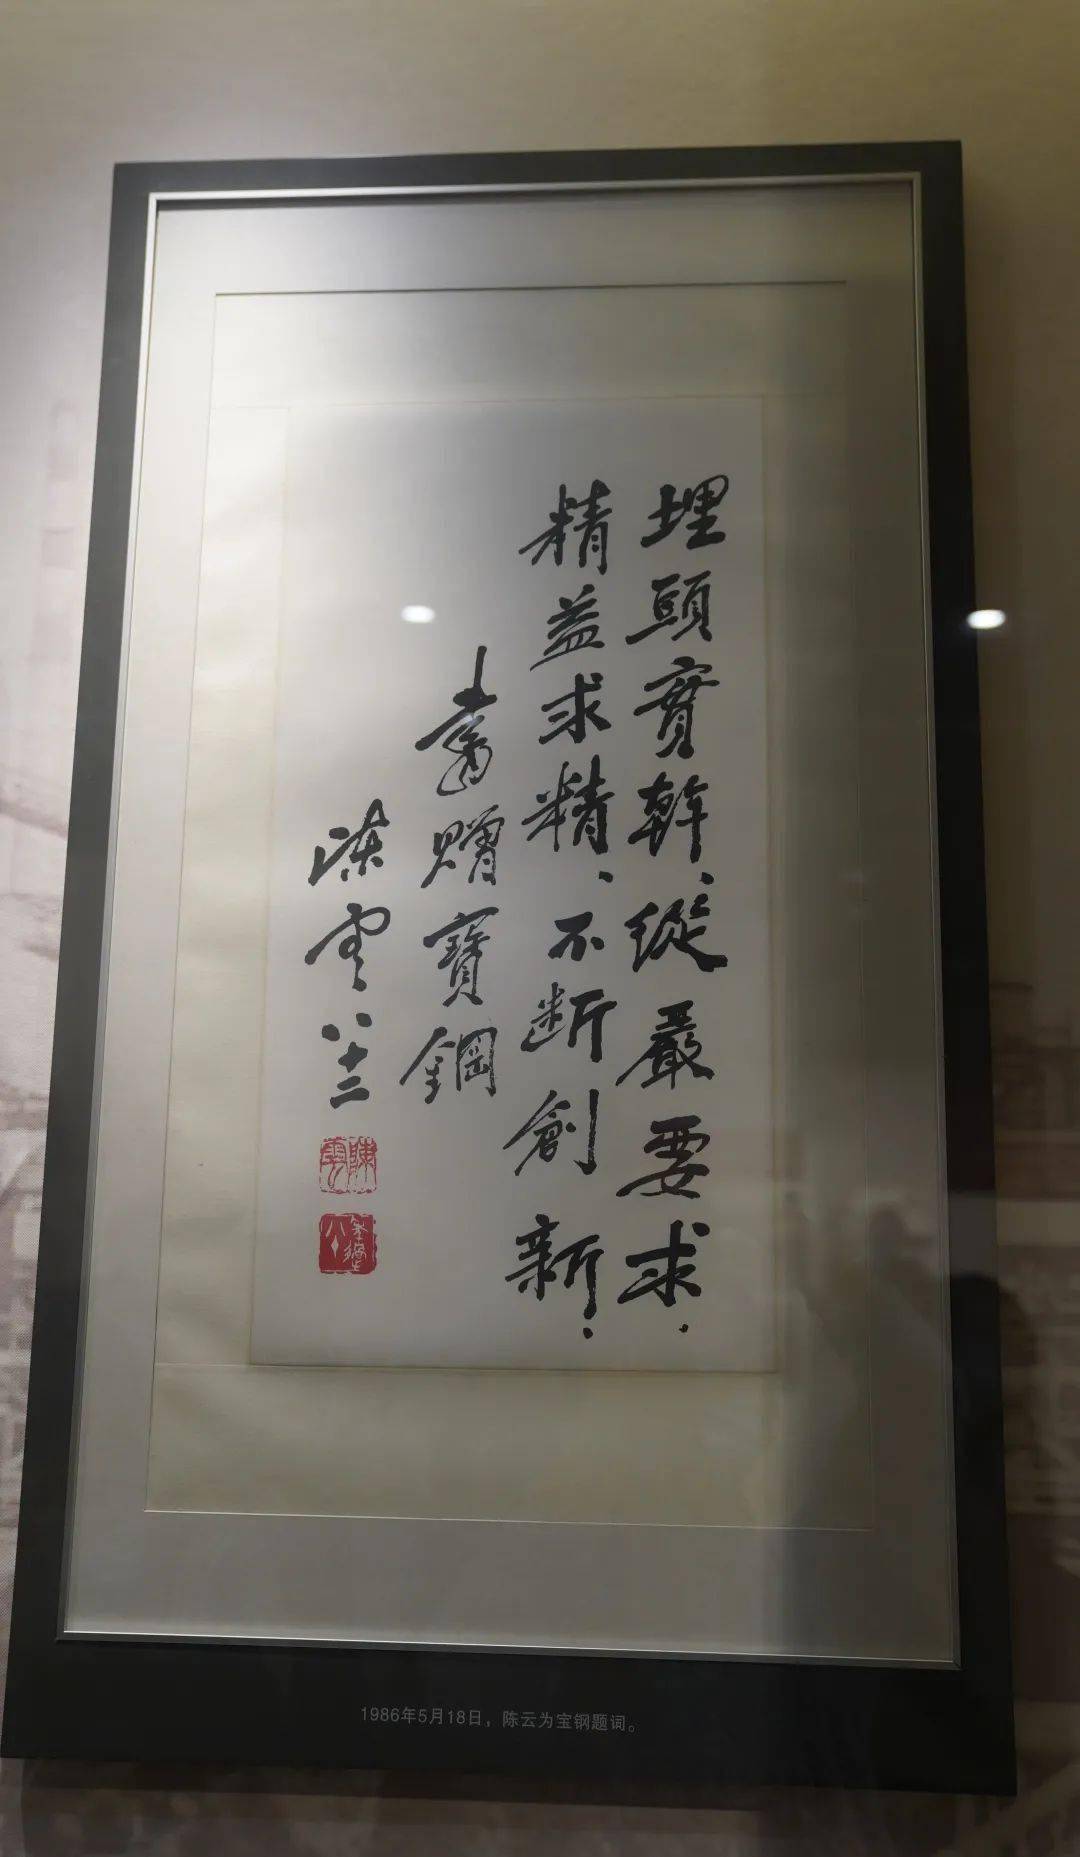 埋頭實幹、從嚴要求.
精益求精、不断創新.
書贈寶鋼
陈云八十二
陳雲
1986年5月18日，陈云为宝钢题词。